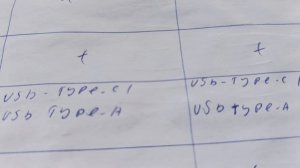 +
+
USB-TYPE-C1
USB TYPE-A
USB-TYPE-C
USB TYPE-A